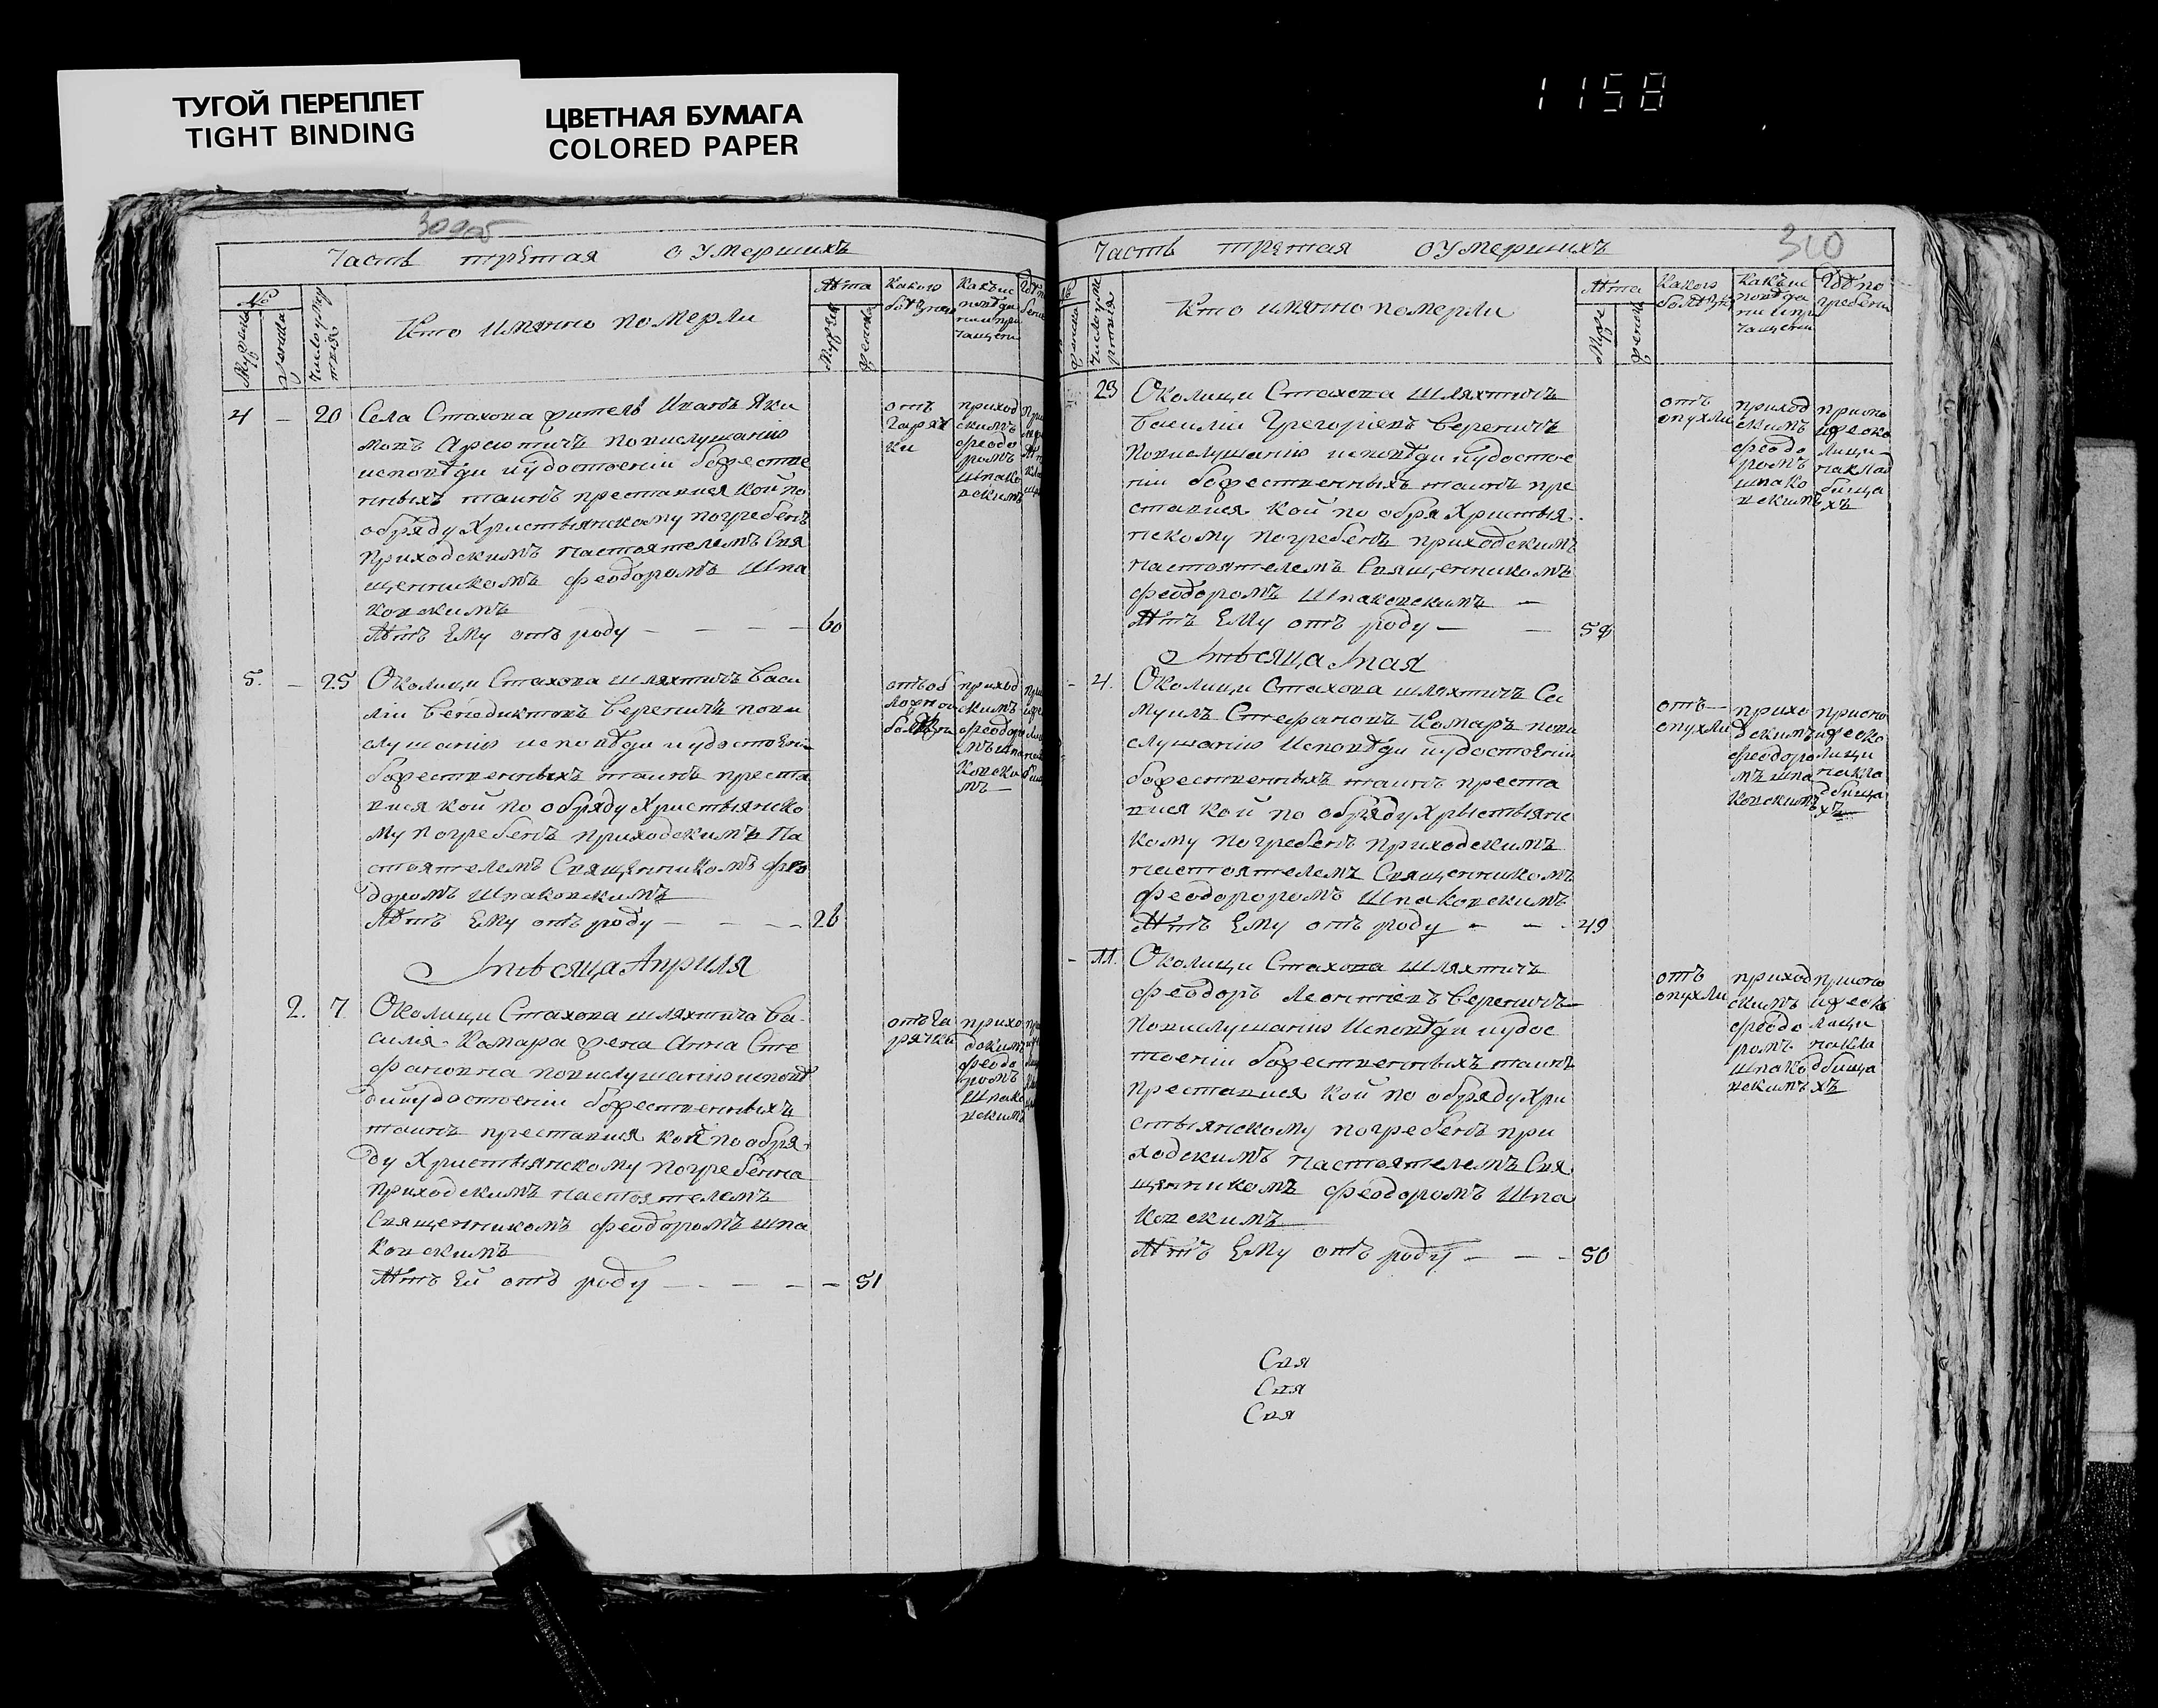 ТУГОЙ ПЕРЕПЛЕТ
TIGHT BINDING
ЦВЕТНАЯ БУМАГА
COLORED PAPER
1158
309об
Часть третая о умершихъ
№
Лѣта
Какою
болѣзнею
Какъ ис
повѣда
ни и при
чащени
Кто имянно померли
4 – 20 Села Стахова житель Иванъ Яки
мовъ Арютичъ повислушанію
исповѣди иудостоеніи божестве
нныхъ таинъ преставися кой по
обряду Христыянскому погребенъ
Приходскимъ настоятелемъ Свя
щенникомъ феодоромъ Шпа
ковскимъ
Лѣтъ Ему отъ роду – – – – 60
отъ
гаряч
ки
приход
скимъ
феодо
ромъ
шпако
вскимъ
5. – 25 Околици Стахова шляхтичъ Васи
лій Венедиктовъ Вереничъ пови
слушанію исповѣди иудостоеніи
божественныхъ таинъ преста
вися кой по обряду Христыянско
му погребенъ приходскимъ На
стоятелемъ Священникомъ фео
доромъ Шпаковскимъ
Лѣтъ Ему отъ роду – – – – 26
приход
скимъ
феодоро
мъ шпа
ковски
мъ
Мѣсяца Априля
2. 7 Околици Стахова шляхтича Ва
силія Комара жена Анна Сте
фановна повислушанію исповѣ
ди иудостоении божественныхъ
таинъ преставися кой по обря
ду Христыянскому погребенна
приходскимъ настоятелемъ
Священникомъ феодоромъ шпа
ковскимъ
Лѣтъ Ей отъ роду – – – – – 51
отъ га
рячки
прихо
дскимъ
феодо
ромъ
Шпако
вскимъ
310
Часть третая о умершихъ
Кто имянно померли
Лѣта
Какою
болѣзн
Какъ ис
повѣда
ни и при
чащени
Гдѣ по
гребени
23 Околици Стахова шляхтичъ
Василій Григоріевъ Вереничъ
Повислушанію исповѣди иудостое
ніи божественныхъ таинъ пре
ставися кой по обря Христыя
нскому погребенъ приходскимъ
настоятелемъ Священникомъ
феодоромъ Шпаковскимъ –
Лѣтъ Ему отъ роду – –
отъ
опухли
приход
скимъ
феодо
ромъ
шпако
вскимъ
присто
ижеоко
лици
наклад
бища
хъ
Мѣсяца Мая
– 4. Околици Стахова шляхтичъ Са
муилъ Стефановъ Комаръ пови
слушанію Исповѣди иудостоеніи
божественныхъ таинъ преста
вися кой по обряду Христыянс
кому погребенъ Приходскимъ
настоятелемъ Священникомъ
феодороромъ Шпаковскимъ
Лѣтъ Ему отъ роду – – – 49
отъ
опухли
прихо
дскимъ
феодоро
мъ шпа
ковскимъ
присто
ижеоко
лици
накла
дбища
хъ
– 11. Околици Стахова шляхтичъ
феодоръ Леонтіевъ Вереничъ
Повислушанію Исповѣди иудос
тоеніи божественныхъ таинъ
преставися кой по обряду Хри
стыянскому погребенъ при
ходскимъ настоятелемъ Свя
щенникомъ феодоромъ Шпа
ковскимъ
Лѣтъ Ему отъ роду – – – 50
отъ
опухли
приход
скимъ
феодо
ромъ
шпако
вскимъ
присто
ижеок
лици
накла
дбища
хъ
Свя
Свя
Свя